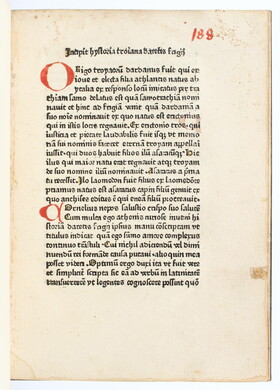 188
Incipit hystoria troiana daretis frigij
Origo troyanorū dardanus fuit qui ex
ioue et electa filia athlantis natus ab
ytalia ex responso locū imitatus per tra
thiam samo delatus est quā samotrachiā nomi
nauit et hinc ad frigiā
a suo noīe nominauit ex quo natus est
qui in istis locis regnauit. Ex
iusticia et pietate laudabilis fuit
ma sui nominis faceret eternam troyam appellari
iussit· qui duos habuit filios ilū
ilus qui maior natu erat regnauit atqȝ troyam
de suo nomine iliū nominauit· Assaracus a sūma
re cessit· Ilo laomedon fuit filius ex laomedōte
priamus natus est assaracus capin filiū genuit ex
quo anchises editus ē qui eneam filiū procreauit·
Cornelius nepos salustio crispo suo salutem
Cum multa ego athenis curiose inueni hi
storiā daretis frigij ipsius manu cōscriptam ut
titulus indicat quā ego sūmo amore complexus
continuo trāstuli· Cui nichil adiciendū vel dimi
nuendū rei formāde causa putaui· alioquin mea
posset videri· Optimū ergo duxi ita ut fuit vere
et simpliciter scripta sic eā ad verbū in latinitatē
transuertere vt legentes cognoscere possint quō